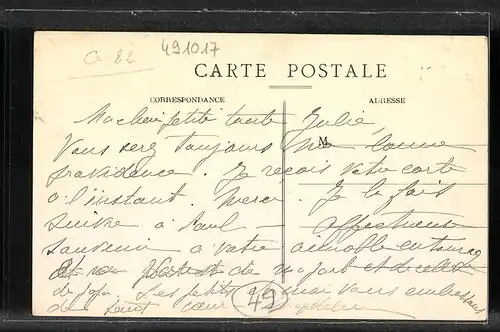 G 82
491017
CARTE POSTALE
CORRESPONDANCE
ADRESSE
M
Ma chère petite tante Julie,
Vous serez toujours ma bonne
providence. Je reçois votre carte
à l'instant. Merci. Je la fais
suivre à Paul affectueux
souvenir à votre aimable entourage
de ma part et de celle
de Les petits & moi vous embrassons
de tout cœur
49